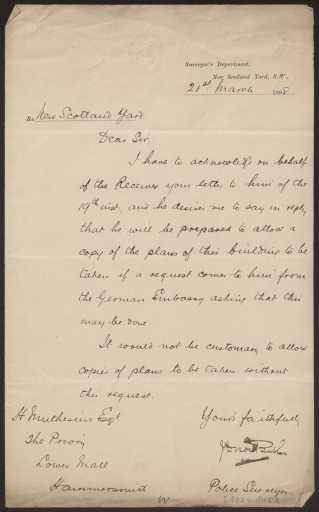 Surveyor's Department,
New Scotland Yard, S.W.,
21st March
re New Scotland Yard
Dear Sir,
I have to acknowledge on behalf
of the Receiver your letter to him of the
19th inst, and he desires me to say in reply
that he will be prepared to allow a
copy of the plans of this building to be
taken if a request comes to him from
the German Embassy asking that this
may be done
It would not be customary to allow
copies of plans to be taken without
this request.
Yours faithfully
H Muthesius Esqr
The Priory
Lower Mall
Hammersmith
Police Surveyor